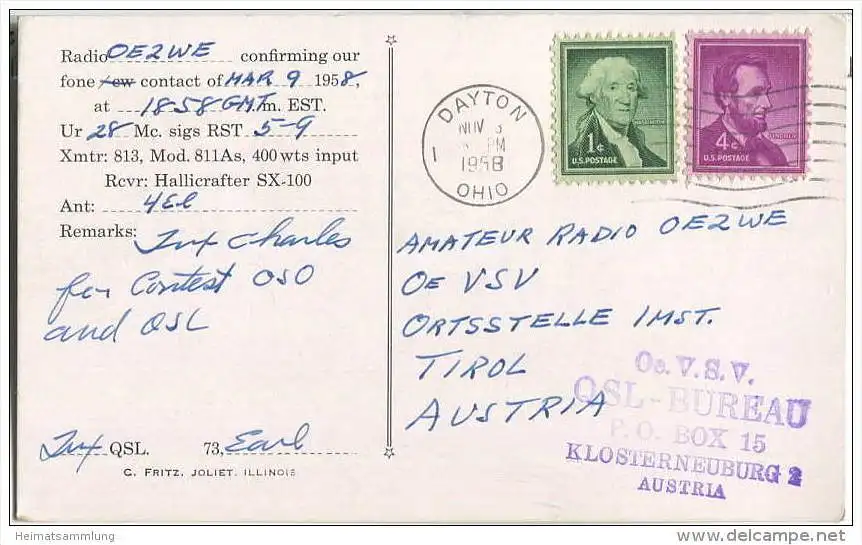 Radio OE2WE confirming our
fone cw contact of MAR 9 1958,
at 18:58 GMT m. EST.
Ur 28 Mc. sigs RST 5-9
Xmtr: 813, Mod. 811As, 400 wts input
Rcvr: Hallicrafter SX-100
Ant: 4El
Remarks: Tnx Charles
for Contest QSO
and QSL
Tnx QSL. 73, Earl
C. FRITZ, JOLIET, ILLINOIS
DAYTON
NOV 3
PM
1958
OHIO
1
WASHINGTON
1¢
U.S. POSTAGE
LINCOLN
4¢
U.S. POSTAGE
AMATEUR RADIO OE2WE
OE VSV
ORTSSTELLE IMST.
TIROL
AUSTRIA
Oe. V. S. V.
QSL-BUREAU
P. O. BOX 15
KLOSTERNEUBURG 2
AUSTRIA
Heimatsammlung
delcampe.net